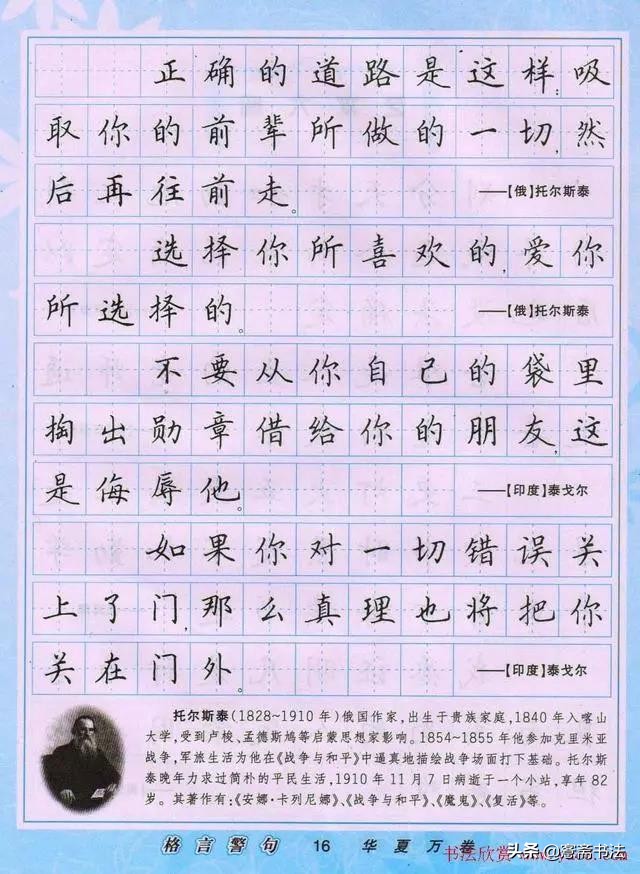 正确的道路是这样:吸
取你的前辈所做的一切,然
后再往前走。 ——【俄】托尔斯泰
选择你所喜欢的,爱你
所选择的。 ——【俄】托尔斯泰
不要从你自己的袋里
掏出勋章借给你的朋友,这
是侮辱他。 ——【印度】泰戈尔
如果你对一切错误关
上了门,那么真理也将把你
关在门外。 ——【印度】泰戈尔
托尔斯泰(1828~1910年)俄国作家,出生于贵族家庭,1840年入喀山
大学,受到卢梭、孟德斯鸠等启蒙思想家影响。1854~1855年他参加克里米亚
战争,军旅生活为他在《战争与和平》中逼真地描绘战争场面打下基础。托尔斯
泰晚年力求过简朴的平民生活,1910年11月7日病逝于一个小站,享年82
岁。其著作有:《安娜·卡列尼娜》、《战争与和平》、《魔鬼》、《复活》等。
格言警句 16 华夏万卷
书法欣赏
头条@蹇斋书法